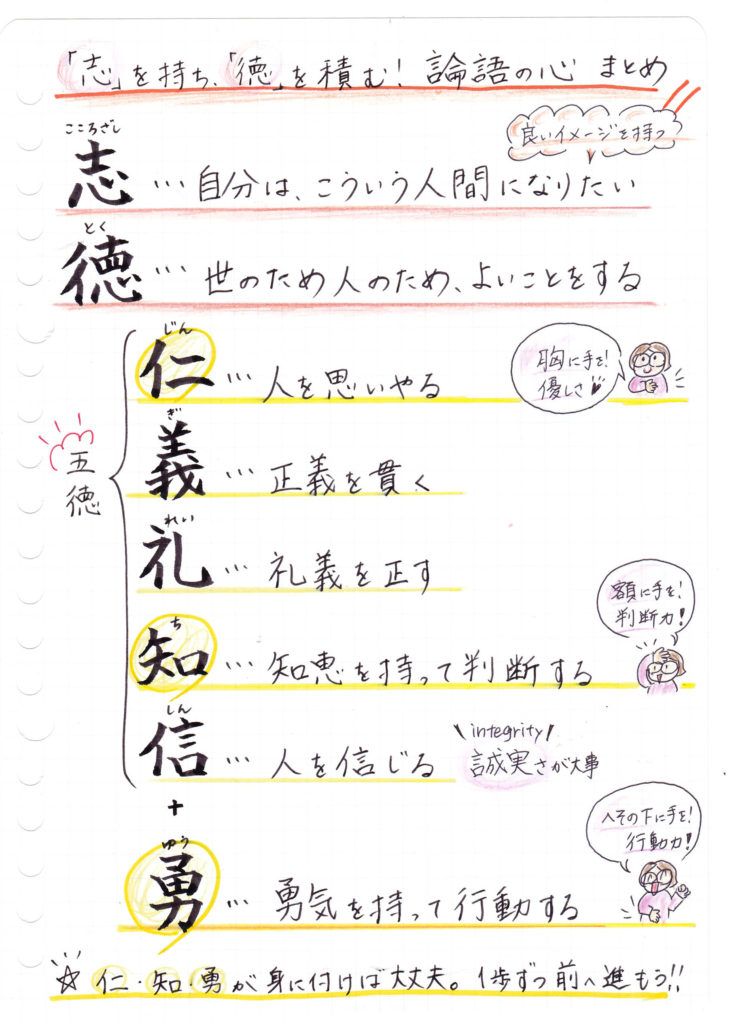 「志」を持ち、「徳」を積む！論語の心 まとめ
良いイメージを持つ
こころざし
志…自分は、こういう人間になりたい
とく
徳…世のため人のため、よいことをする
五徳
じん
仁…人を思いやる
胸に手を！
優しさ♥
ぎ
義…正義を貫く
れい
礼…礼義を正す
額に手を！
判断力！
ち
知…知恵を持って判断する
しん
信…人を信じる
\integrity/
誠実さが大事
+
へその下に手を！
行動力！
ゆう
勇…勇気を持って行動する
☆仁・知・勇が身に付けば大丈夫。1歩ずつ前へ進もう!!